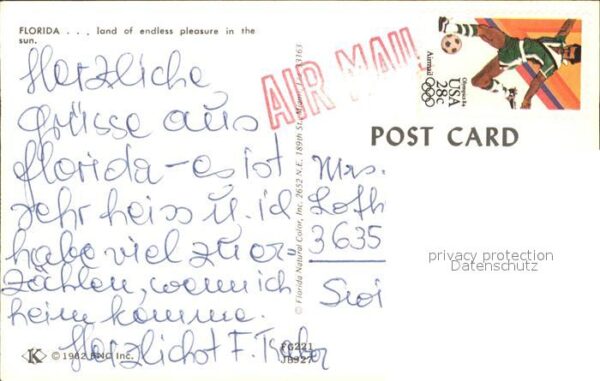 FLORIDA . . . land of endless pleasure in the
sun.
AIR MAIL
Olympics 84
USA
28c
Airmail
POST CARD
Herzliche
Grüsse aus
Florida – es ist
sehr heiss u. ich
habe viel zu er=
zählen, wenn ich
heim komme.
Herzlichst F.
Mrs.
Loth
3635
Swi
privacy protection
Datenschutz
© Florida Natural Color, Inc. 2652 N.E. 189th St., Miami, Fla. 33163
K © 1982 FNC Inc.
FG221
JB927